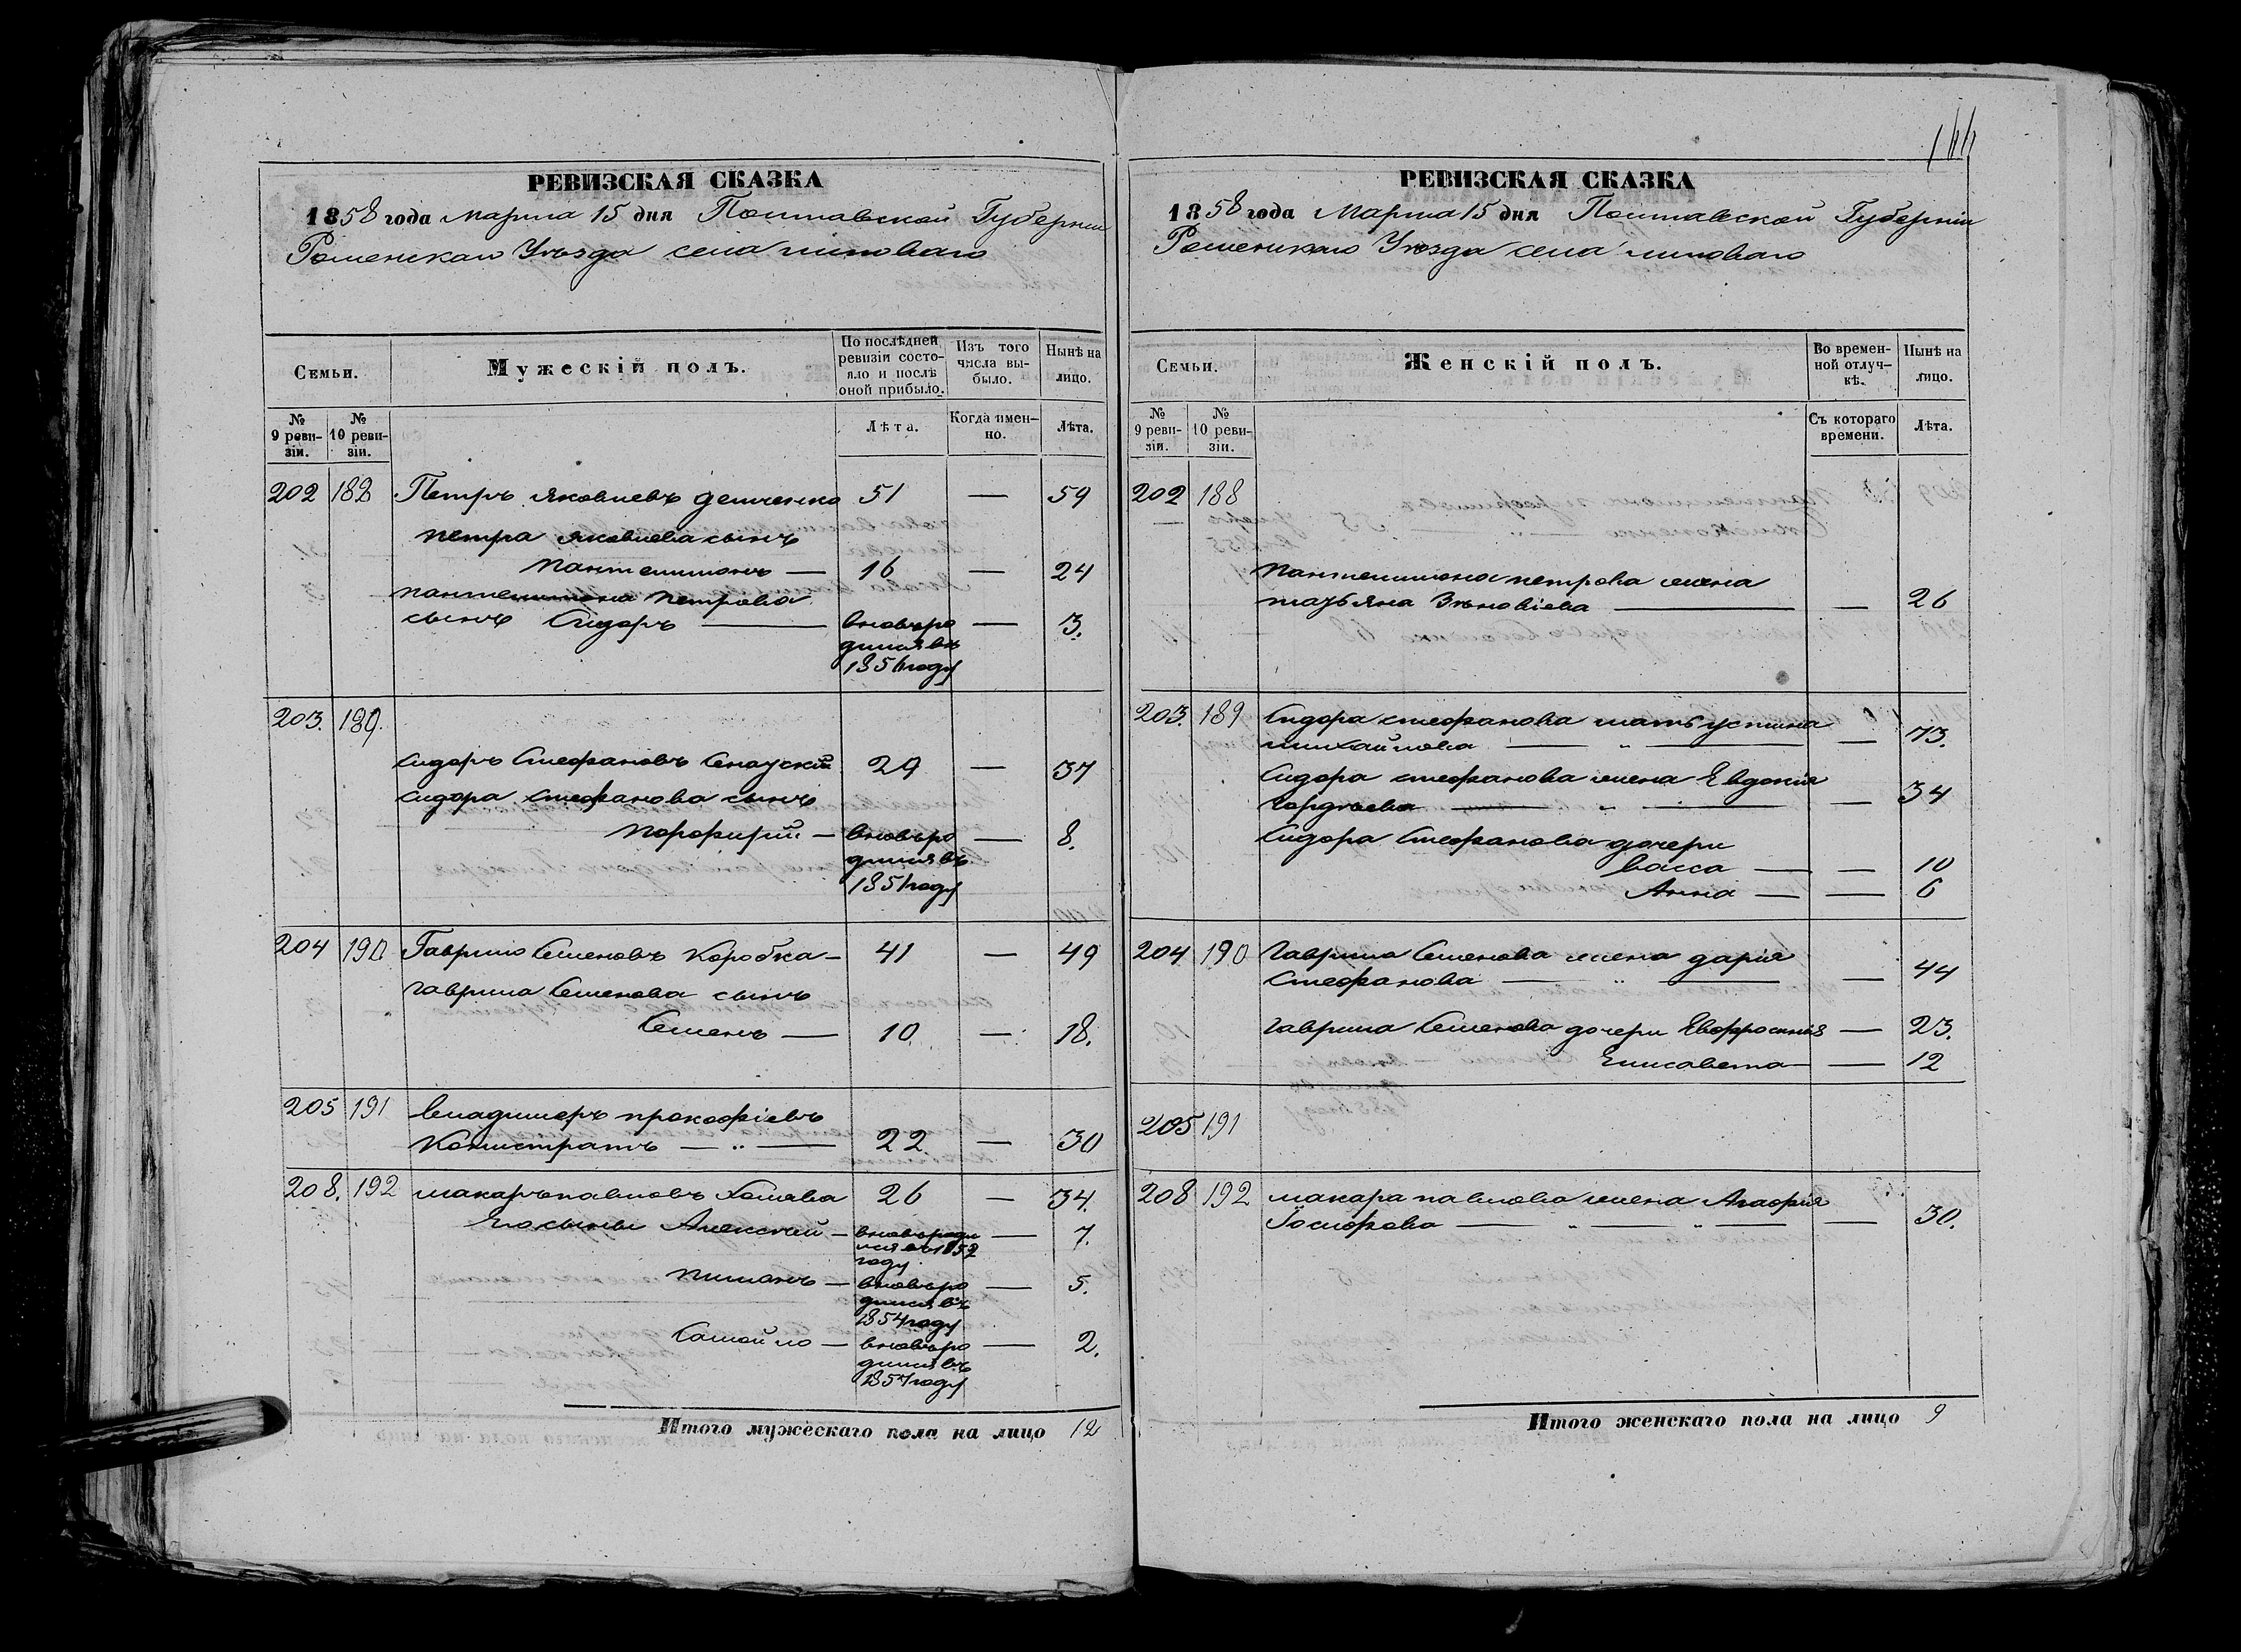 РЕВИЗСКАЯ СКАЗКА
1858 года Марта 15 дня Полтавской Губерніи
Роменскаго Уѣзда села Липоваго
Семьи.
Мужескій полъ.
По послѣдней ревизіи состояло и послѣ оной прибыло.
Изъ того числа выбыло.
Нынѣ на лицо.
№ 9 ревизіи.
№ 10 ревизіи.
Лѣта.
Когда именно.
Лѣта.
202 188 Петръ Яковлевъ 51 — 59
Петра Яковлева сынъ
Пантелимонъ — 16 — 24
Пантелимона Петрова
сынъ Сидоръ — вновь ро — 3.
дился въ
году
203. 189.
Сидоръ Стефановъ 29 — 37
Сидора Стефанова сынъ
Порфирий — вновь ро — 8.
дился въ
1851 году
204 190 Гаврило Семеновъ Коробка — 41 — 49
Гаврила Семенова сынъ
Семенъ — 10 — 18.
205 191 Владимеръ Прокофіевъ
Калистратъ — " — 22 — 30
208. 192 Макаръ Павловъ 26 — 34.
Его сыны Алексѣй — вновь роди — 7.
лся въ 1852
году
Пимонъ — вновь ро — 5.
дился въ
1854 году
Самойло — вновь ро — 2.
дился въ
1857 году
Итого мужескаго пола на лицо 12
РЕВИЗСКАЯ СКАЗКА
1858 года Марта 15 дня Полтавской Губерніи
Роменскаго Уѣзда села Липоваго
Семьи.
Женскій полъ.
Во временной отлучкѣ.
Нынѣ на лицо.
№ 9 ревизіи.
№ 10 ревизіи.
Съ котораго времени.
Лѣта.
202 188
Пантелимона Петрова жена
Татьяна Зѣновіева — — 26
203. 189 Сидора Стефанова мать Устина
Михайлова — " — — 73.
Сидора Стефанова жена Евдокія
Гордѣева — " — — 34
Сидора Стефанова дочери
Васса — — 10
Анна — — 6
204 190 Гаврила Семенова жена Дарія
Стефанова — " — — 44
Гаврила Семенова дочери Евфросинія — 23.
Елисавета — — 12
205 191
208 192 Макара Павлова жена Агафія
Іосифова — " — " — — 30.
Итого женскаго пола на лицо 9